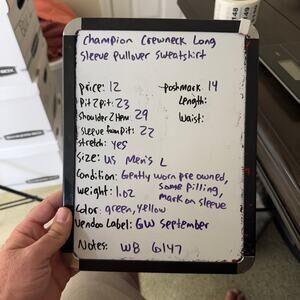 Champion Crewneck Long
Sleeve Pullover Sweatshirt
price: 12 Poshmark 14
Pit 2 pit: 23 Length:
Shoulder 2 Hem: 29 Waist:
Sleeve from Pit: 22
Stretch: yes
Size: US Men's L
Condition: Gently worn pre owned,
some pilling,
mark on sleeve
Weight: 1.02
Color: green, yellow
Vendoo Label: GW September
Notes: WB 6147